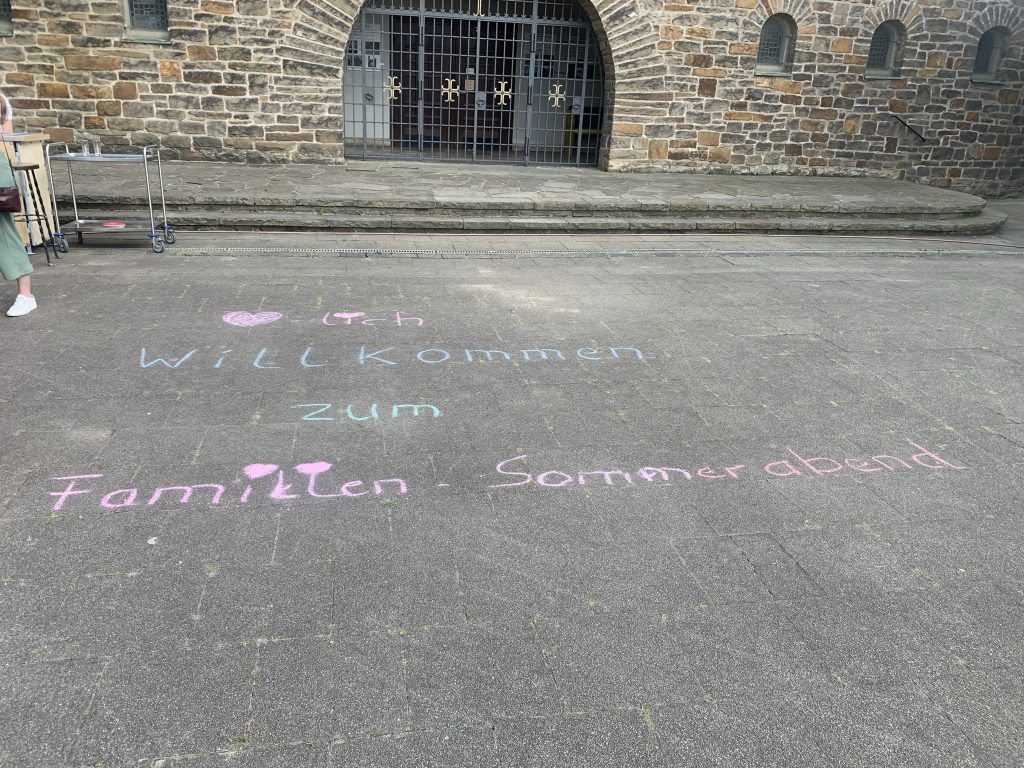 ♥-lich
Willkommen
zum
Familien - Sommerabend